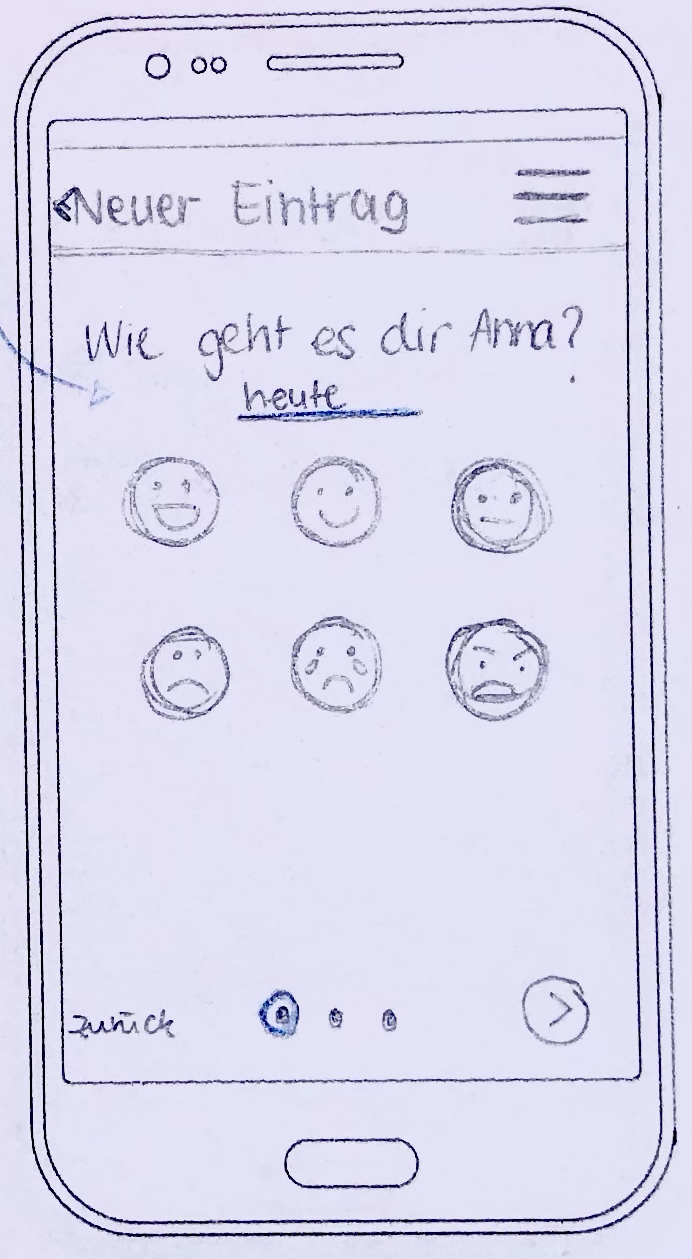 <Neuer Eintrag
Wie geht es dir Anna?
heute
zurück